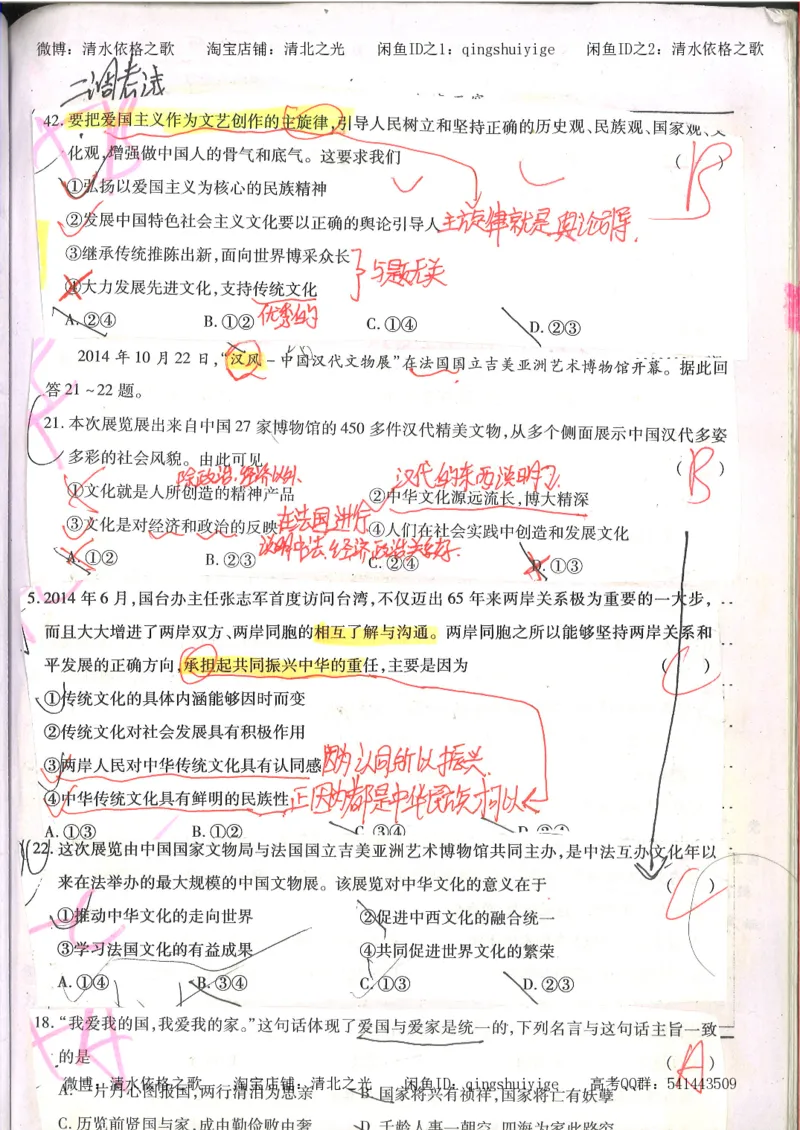 微博：清水依格之歌 淘宝店铺：清北之光 闲鱼ID之1：qingshuiyige 闲鱼ID之2：清水依格之歌
42. 要把爱国主义作为文艺创作的主旋律，引导人民树立和坚持正确的历史观、民族观、国家观、
化观，增强做中国人的骨气和底气。这要求我们 （ ） B
①弘扬以爱国主义为核心的民族精神
②发展中国特色社会主义文化要以正确的舆论引导人 主旋律就是舆论引导.
③继承传统推陈出新，面向世界博采众长
与题无关
④大力发展先进文化，支持传统文化
优秀的
A. ②④ B. ①② C. ①④ D. ②③
2014年10月22日，“汉风－中国汉代文物展”在法国国立吉美亚洲艺术博物馆开幕。据此回
答21～22题。
21. 本次展览展出来自中国27家博物馆的450多件汉代精美文物，从多个侧面展示中国汉代多姿
多彩的社会风貌。由此可见 （ ） B
除政治、经济以外 汉代的东西说明了.
①文化就是人所创造的精神产品 ②中华文化源远流长，博大精深
③文化是对经济和政治的反映 在法国进行 ④人们在社会实践中创造和发展文化
说明中法、经济政治关系好.
A. ①② B. ②③ C. ②④ D. ①③
5. 2014年6月，国台办主任张志军首度访问台湾，不仅迈出65年来两岸关系极为重要的一大步，
而且大大增进了两岸双方、两岸同胞的相互了解与沟通。两岸同胞之所以能够坚持两岸关系和
平发展的正确方向，承担起共同振兴中华的重任，主要是因为 （ ） C
①传统文化的具体内涵能够因时而变
②传统文化对社会发展具有积极作用
③两岸人民对中华传统文化具有认同感 因为认同所以振兴.
④中华传统文化具有鲜明的民族性 正因为都是中华民族所以
A. ①③ B. ①② C. ③④ D. ②④
22. 这次展览由中国国家文物局与法国国立吉美亚洲艺术博物馆共同主办，是中法互办文化年以
来在法举办的最大规模的中国文物展。该展览对中华文化的意义在于 （ ） C
①推动中华文化的走向世界 ②促进中西文化的融合统一
③学习法国文化的有益成果 ④共同促进世界文化的繁荣
A. ①④ B. ③④ C. ①③ D. ②③
18. “我爱我的国，我爱我的家。”这句话体现了爱国与爱家是统一的，下列名言与这句话主旨一致
的是 （ ） A
微博：清水依格之歌 淘宝店铺：清北之光 闲鱼ID：qingshuiyige 高考QQ群：541443509
A. 一片丹心图报国，两行清泪为思亲 B. 国家将兴有祯祥，国家将亡有妖孽
C. 历览前贤国与家，成由勤俭败由奢 D. 千龄人事一朝空，四海为家此路穷